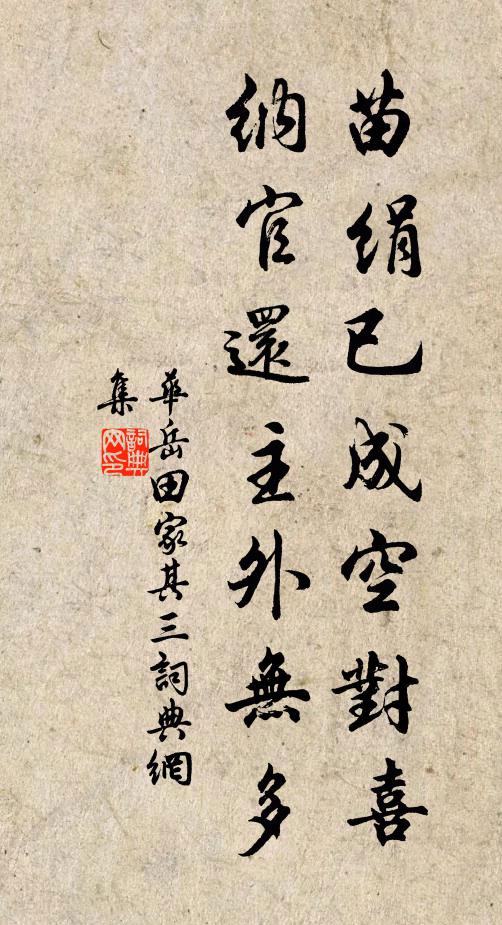 苗絹已成空對喜
納官還主外無多
華岳田家其三詞典網
集
詞典
网印